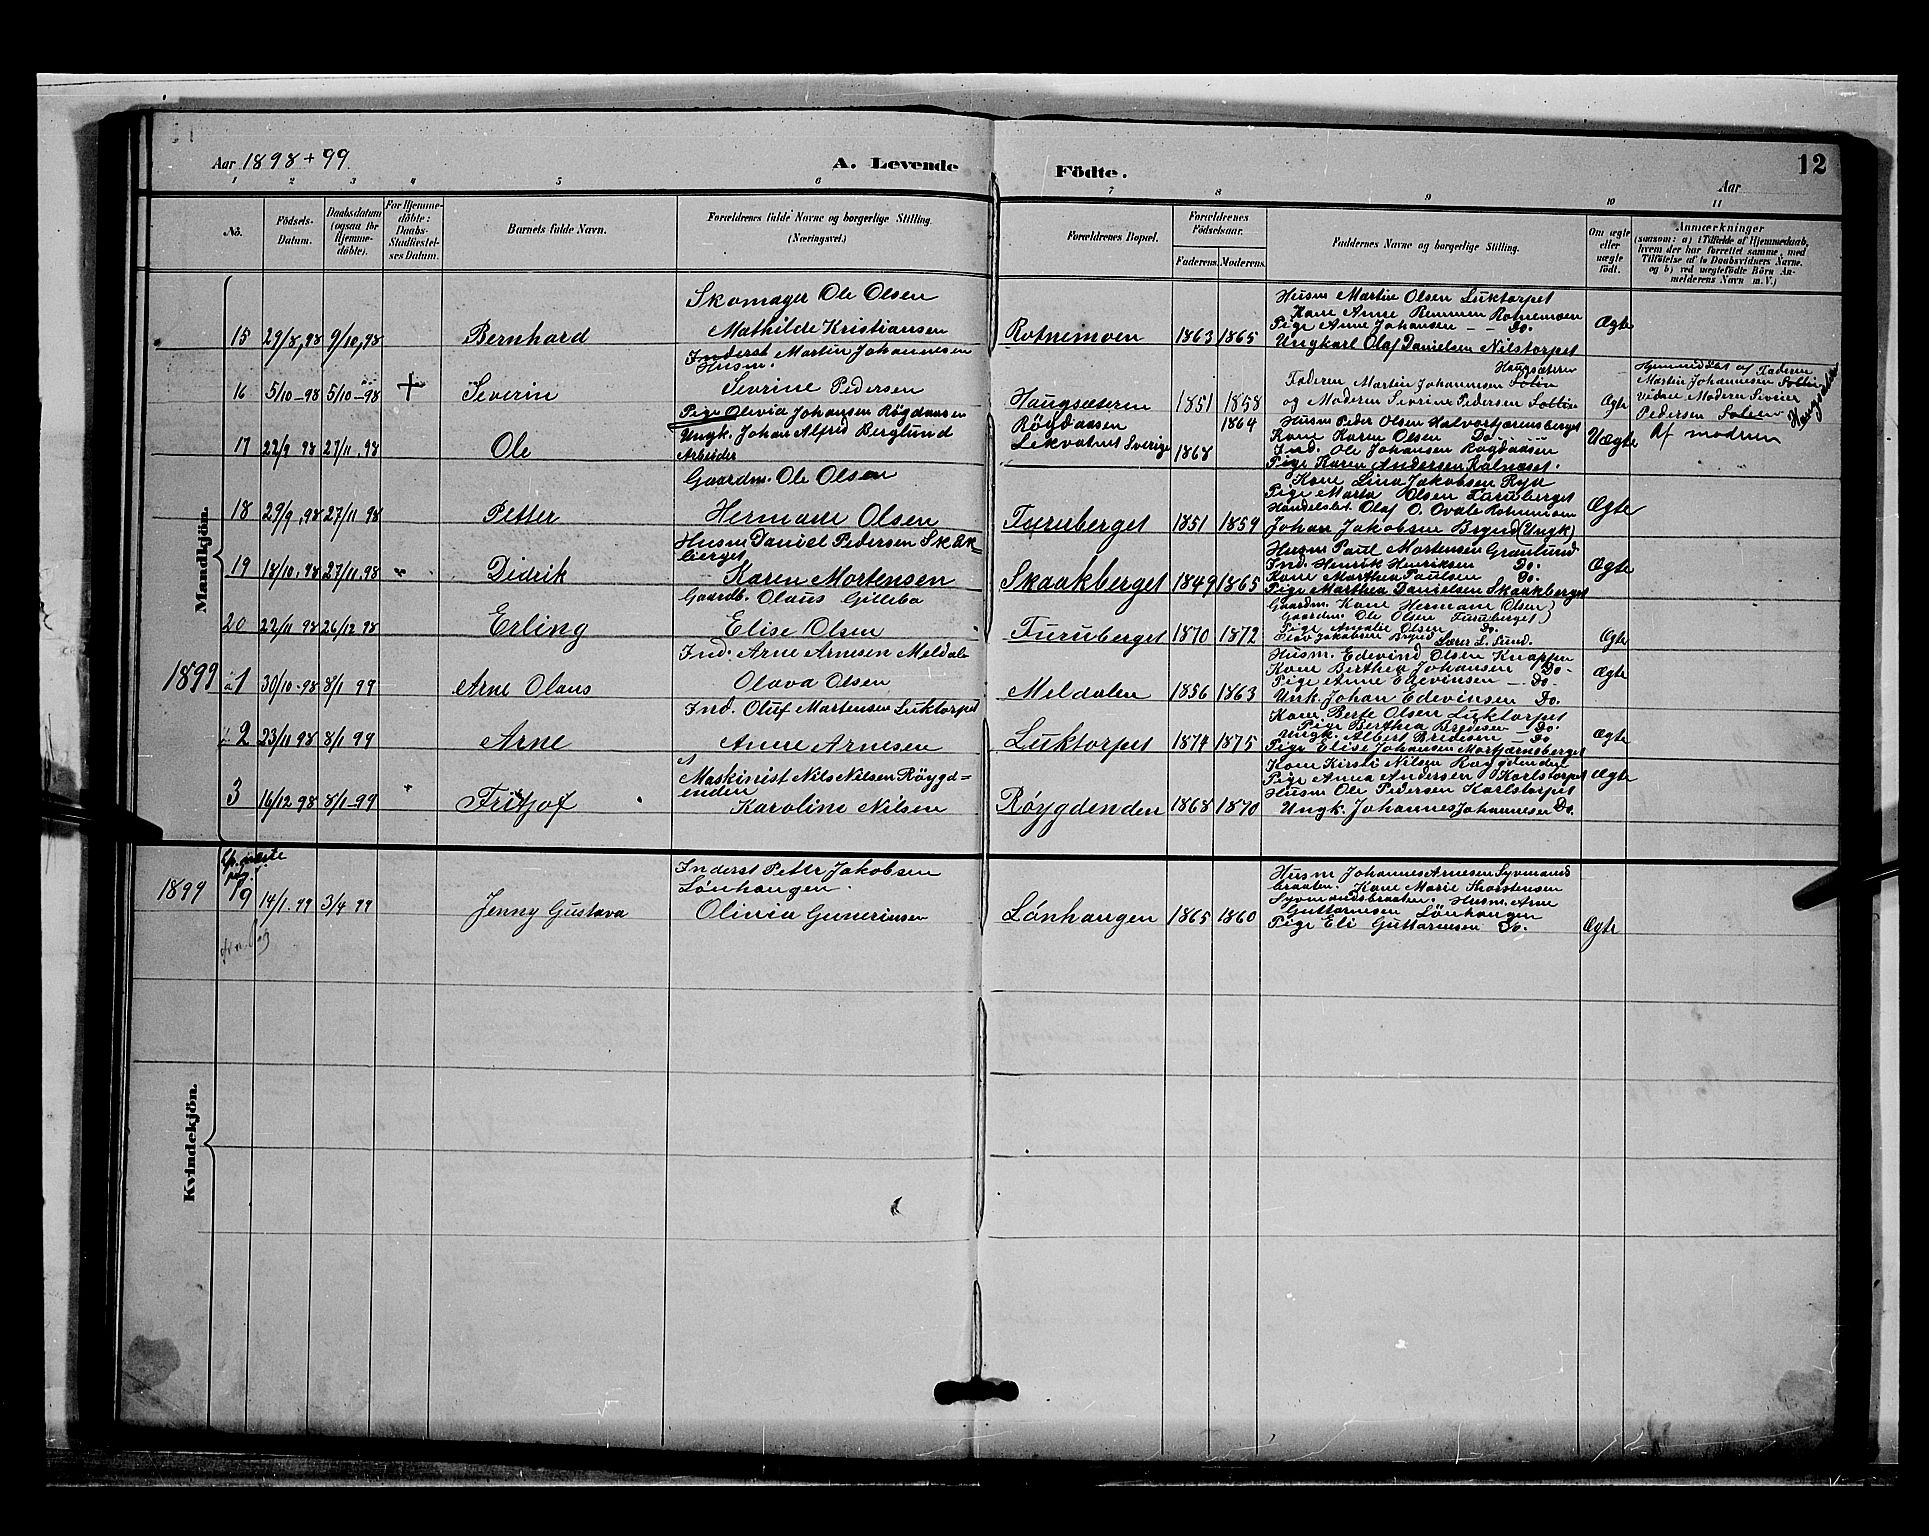 Aar 1898 + 99.
A. Levende Födte.
12
Aar
1 2 3 4 5 6 7 8 9 10 11
No.
Födsels-Datum.
Daabsdatum (ogsaa for Hjemme-døbte).
For Hjemme-døbte: Daabs-Stadfæstel-ses Datum.
Barnets fulde Navn.
Forældrenes fulde Navne og borgerlige Stilling. (Næringsvei.)
Forældrenes Bopæl.
Forældrenes Födselsaar.
Faderens. Moderens.
Faddernes Navne og borgerlige Stilling.
Om ægte eller uægte födt.
Anmærkninger (saasom: a) i Tilfælde af Hjemmedaab, hvem der har forrettet samme, med Tilføielse af to Daabsvidners Navne. og b) ved uægtefødte Börn An-melderens Navn m. V.)
Mandkjön.
15 29/8, 98 9/10, 98 Bernhard
Skomager Ole Olsen
Mathilde Kristiansen
Rotnemoen 1863 1865
Husm Martin Olsen Luktorpet
Kone Anne Rotnemoen
Pige Anne Johansen - - Do.
Ungkarl Olaf Danielsen Nilstorpet
Ægte
16 5/10-98 5/10-98 + Severin
Inderst Martin Johannesen
Husm.
Sevrine Pedersen
Haugsæteren 1851 1858
Haugsæteren
Faderen Martin Johannesen
og Moderen Sevrine Pedersen
Ægte
Hjemmedöbt af Faderen
Martin Johannesen
Vidne Moderen
Pedersen
17 22/9 98 27/11. 98 Ole
Pige Olivia Johansen Røgdaasen
Ungk. Johan Alfred Berglund
Arbeider
Røgdaasen 1864
Lekvatnet Sverige 1868
Husm Peder Olsen Halvortjærnsberget
Kone Karen Olsen Do.
Ind. Ole Johansen Røgdaasen
Pige Karen Andersen Kalnæset.
Uægte
Af modren
18 29/9, 98 27/11 98 Petter
Gaardm. Ole Olsen
Hermane Olsen
Furuberget 1851 1859
Kone Lina Jakobsen Ryd
Pige Marta Olsen Furuberget
Handelsbet. Olaf O. Ovale Rotnemoen
Johan Jakobsen Brynd (Ungk)
Ægte
19 18/10. 98 27/11. 98 Didrik
Husm Daniel Pedersen Skaak=
berget
Karen Mortensen
Skaakberget 1849 1865
Husm Paul Mortensen Grønlund
Ind. Henrik Henriksen Do.
Kone Marthea Paulsen Do.
Pige Marthea Danielsen Skaakberget
Ægte
20 22/11 98 26/12 98 Erling
Gaardb. Olaus Gillebo
Elise Olsen
Furuberget 1870 1872
Gaardm. Kone Hermane Olsen)
Gaardm. Ole Olsen Furuberget)
Pige Amalie Olsen Do.
Jakobsen Brynd Lærer L. Lund.
Ægte
1899 1 30/10-98 8/1 99 Arne Olaus
Ind. Arne Arnesen Meldalen
Olava Olsen
Meldalen 1856 1863
Husm. Edevind Olsen Knappen
Kone Berthea Johansen Do-
Pige Anne Edevinsen - Do.
Unk. Johan Edevinsen Do.
Ægte
2 23/11 98 8/1 99 Arne
Ind. Oluf Martensen Luktorpet
Anne Arnesen
Luktorpet 1874 1875
Kone. Berte Olsen Luktorpet
Pige Berthea Bredesen - Do.
Ungk. Albert Bredesen - Do
Pige Elise Johansen Mortjærnsberget
Ægte
3 16/12 98 8/1-99 Fritjof
Maskinist Nils Nilsen Röygd=
enden
Karoline Nilsen
Röygdenden 1868 1870
Kone Kirsti Nilsen Røygdenden
Pige Anna Andersen Karlstorpet
Husm Ole Pedersen Karlstorpet
Ungk. Johannes Johannesen Do.
Ægte
Kvindekjön.
1899 19 14/1. 99 3/4 99 Jenny Gustava
Inderst Petter Jakobsen
Lönhaugen.
Olivia Gunerinsen
Lönhaugen 1865 1860
Husm Johannes Arnesen Syvmands
braaten. Kone Marie Thorstensen
Syvmandsbraaten. Husm. Arne
Guttormsen Lönhaugen
Pige Eli Guttormsen Do.
Ægte